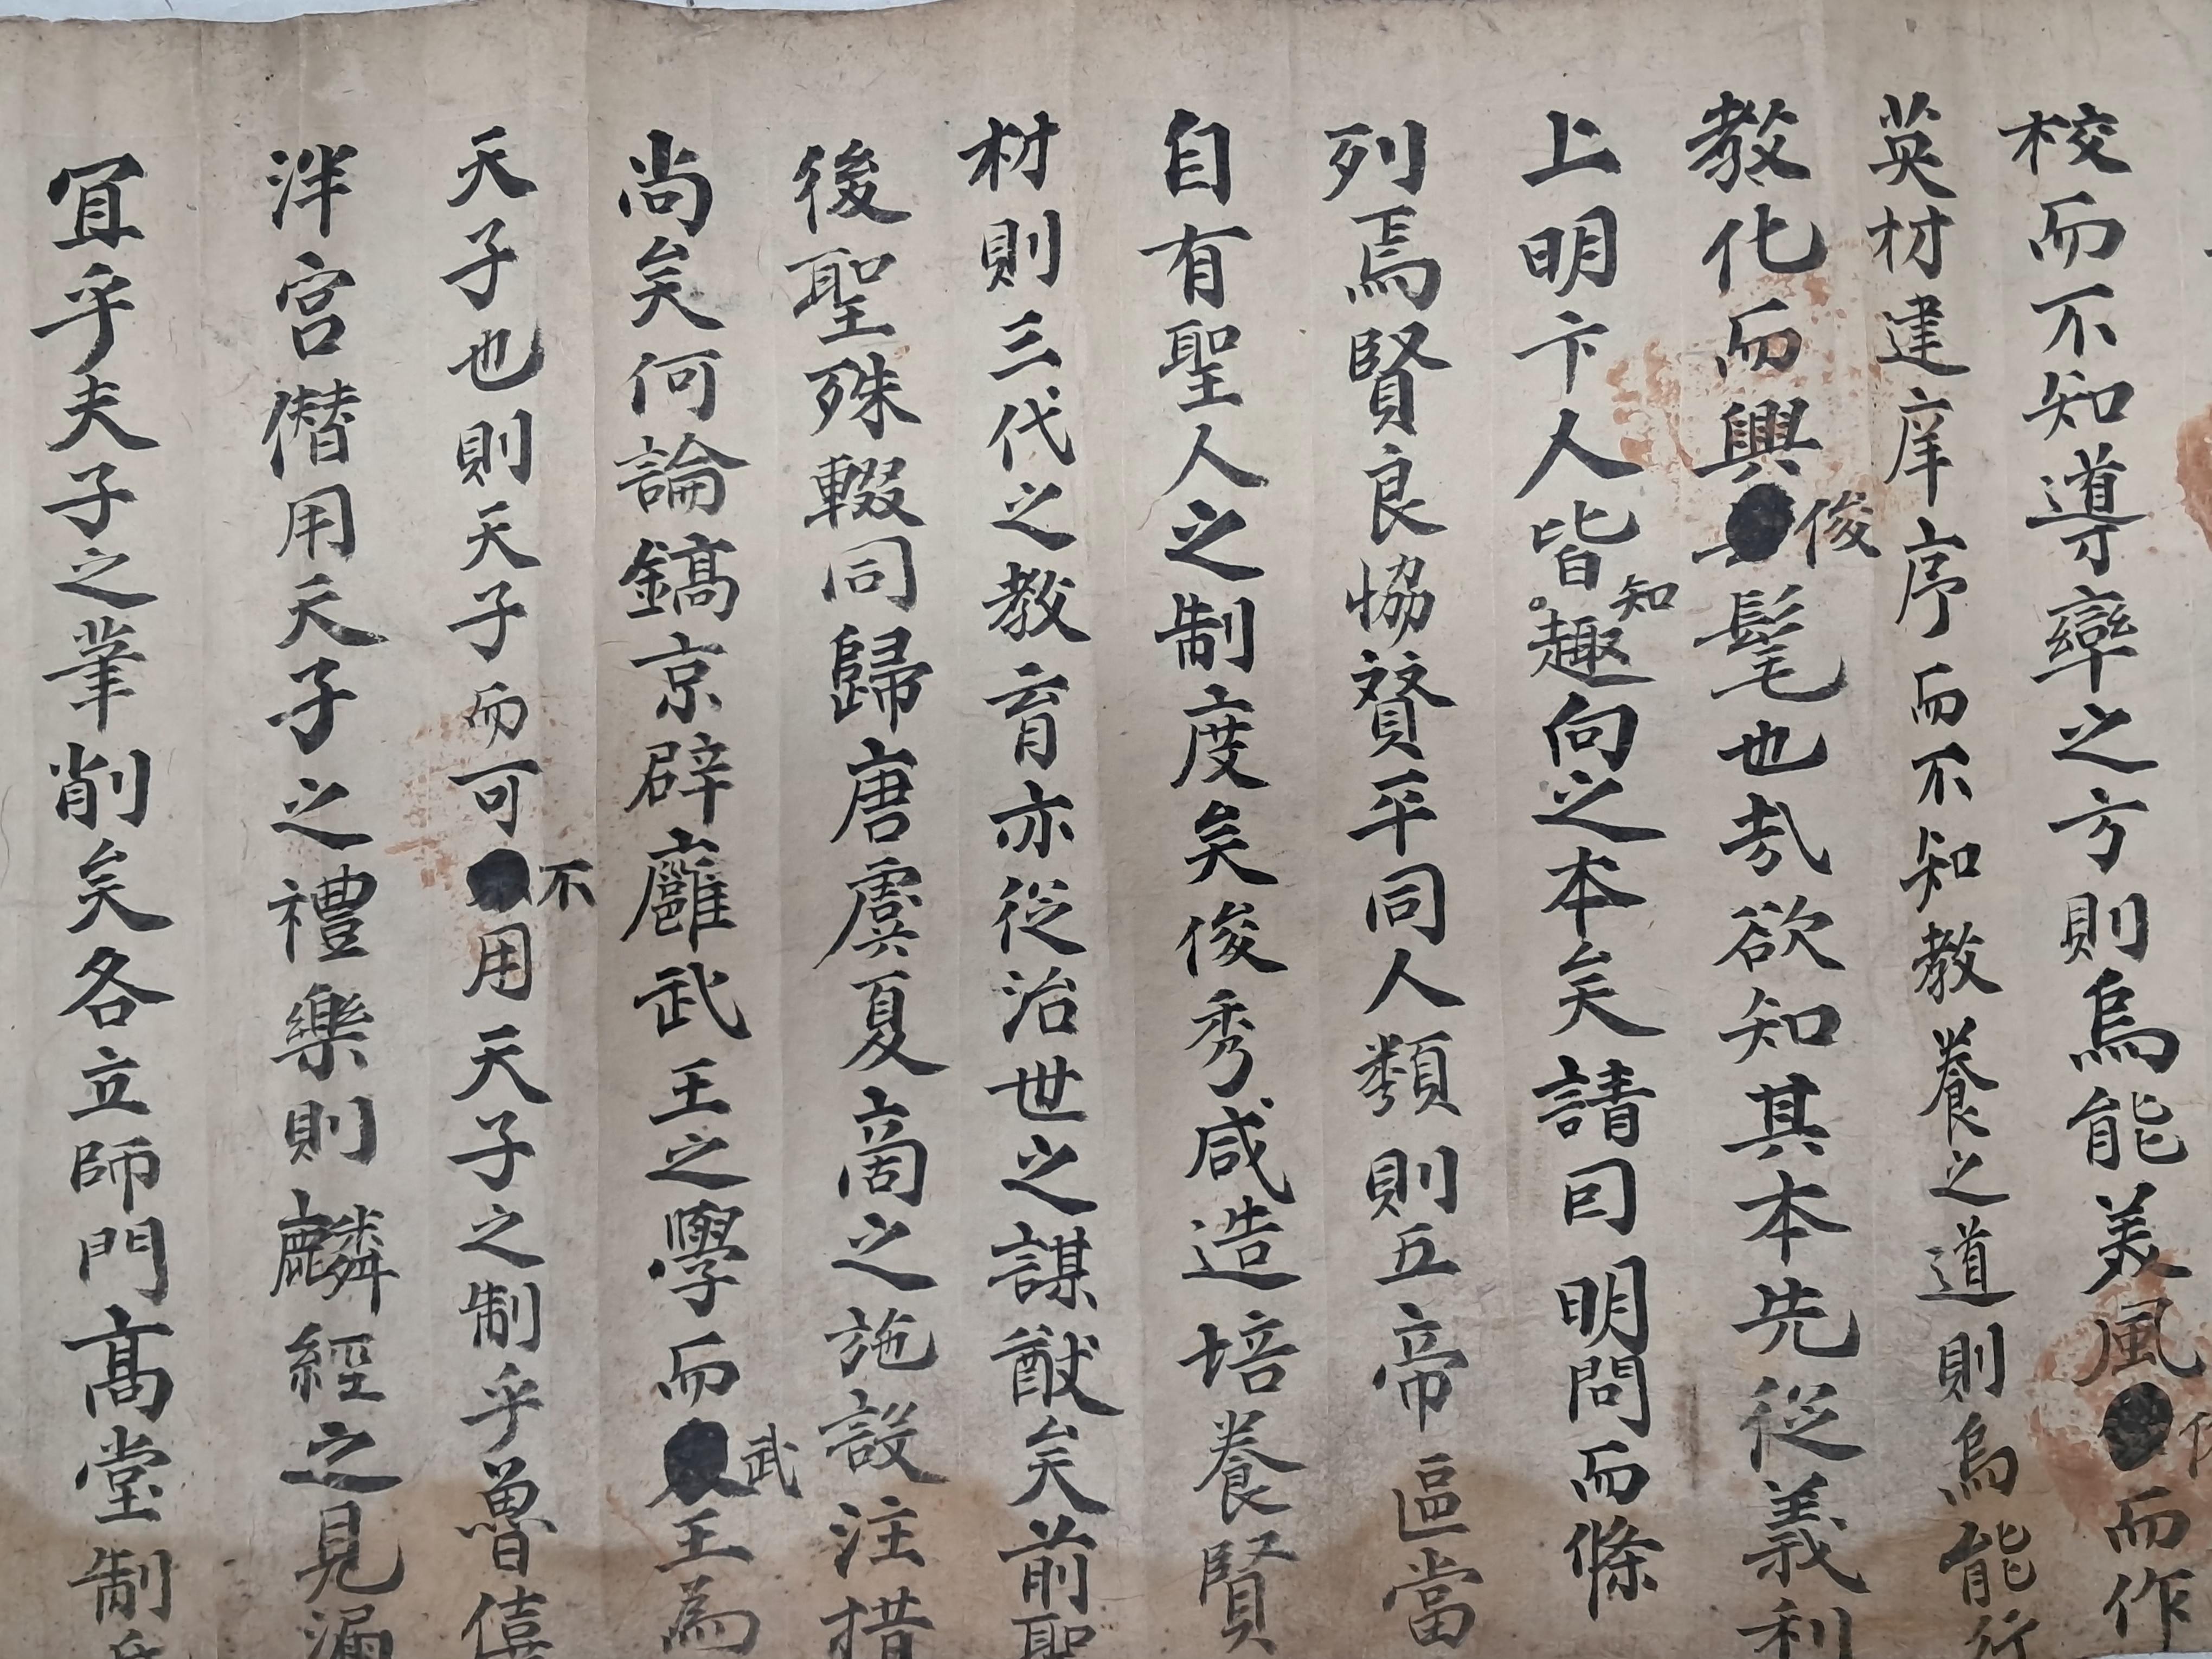 校而不知導率之方則烏能美風而作
英材建庠序而不知教養之道則烏能行
教化而興俊髦也哉欲知其本先從義利
上明卞人皆知趣向之本矣請囙明問而條
列焉賢良協贊平同人類則五帝區當
自有聖人之制度矣俊秀咸造培養賢
材則三代之教育亦從治世之謀猷矣前聖
後聖殊輟同歸唐虞夏商之施設注措
尚矣何論鎬京辟廱武王之學而武王為
天子也則天子而可不用天子之制乎魯僖
泮宮僭用天子之禮樂則麟經之見漏
宜乎夫子之筆削矣各立師門高堂制